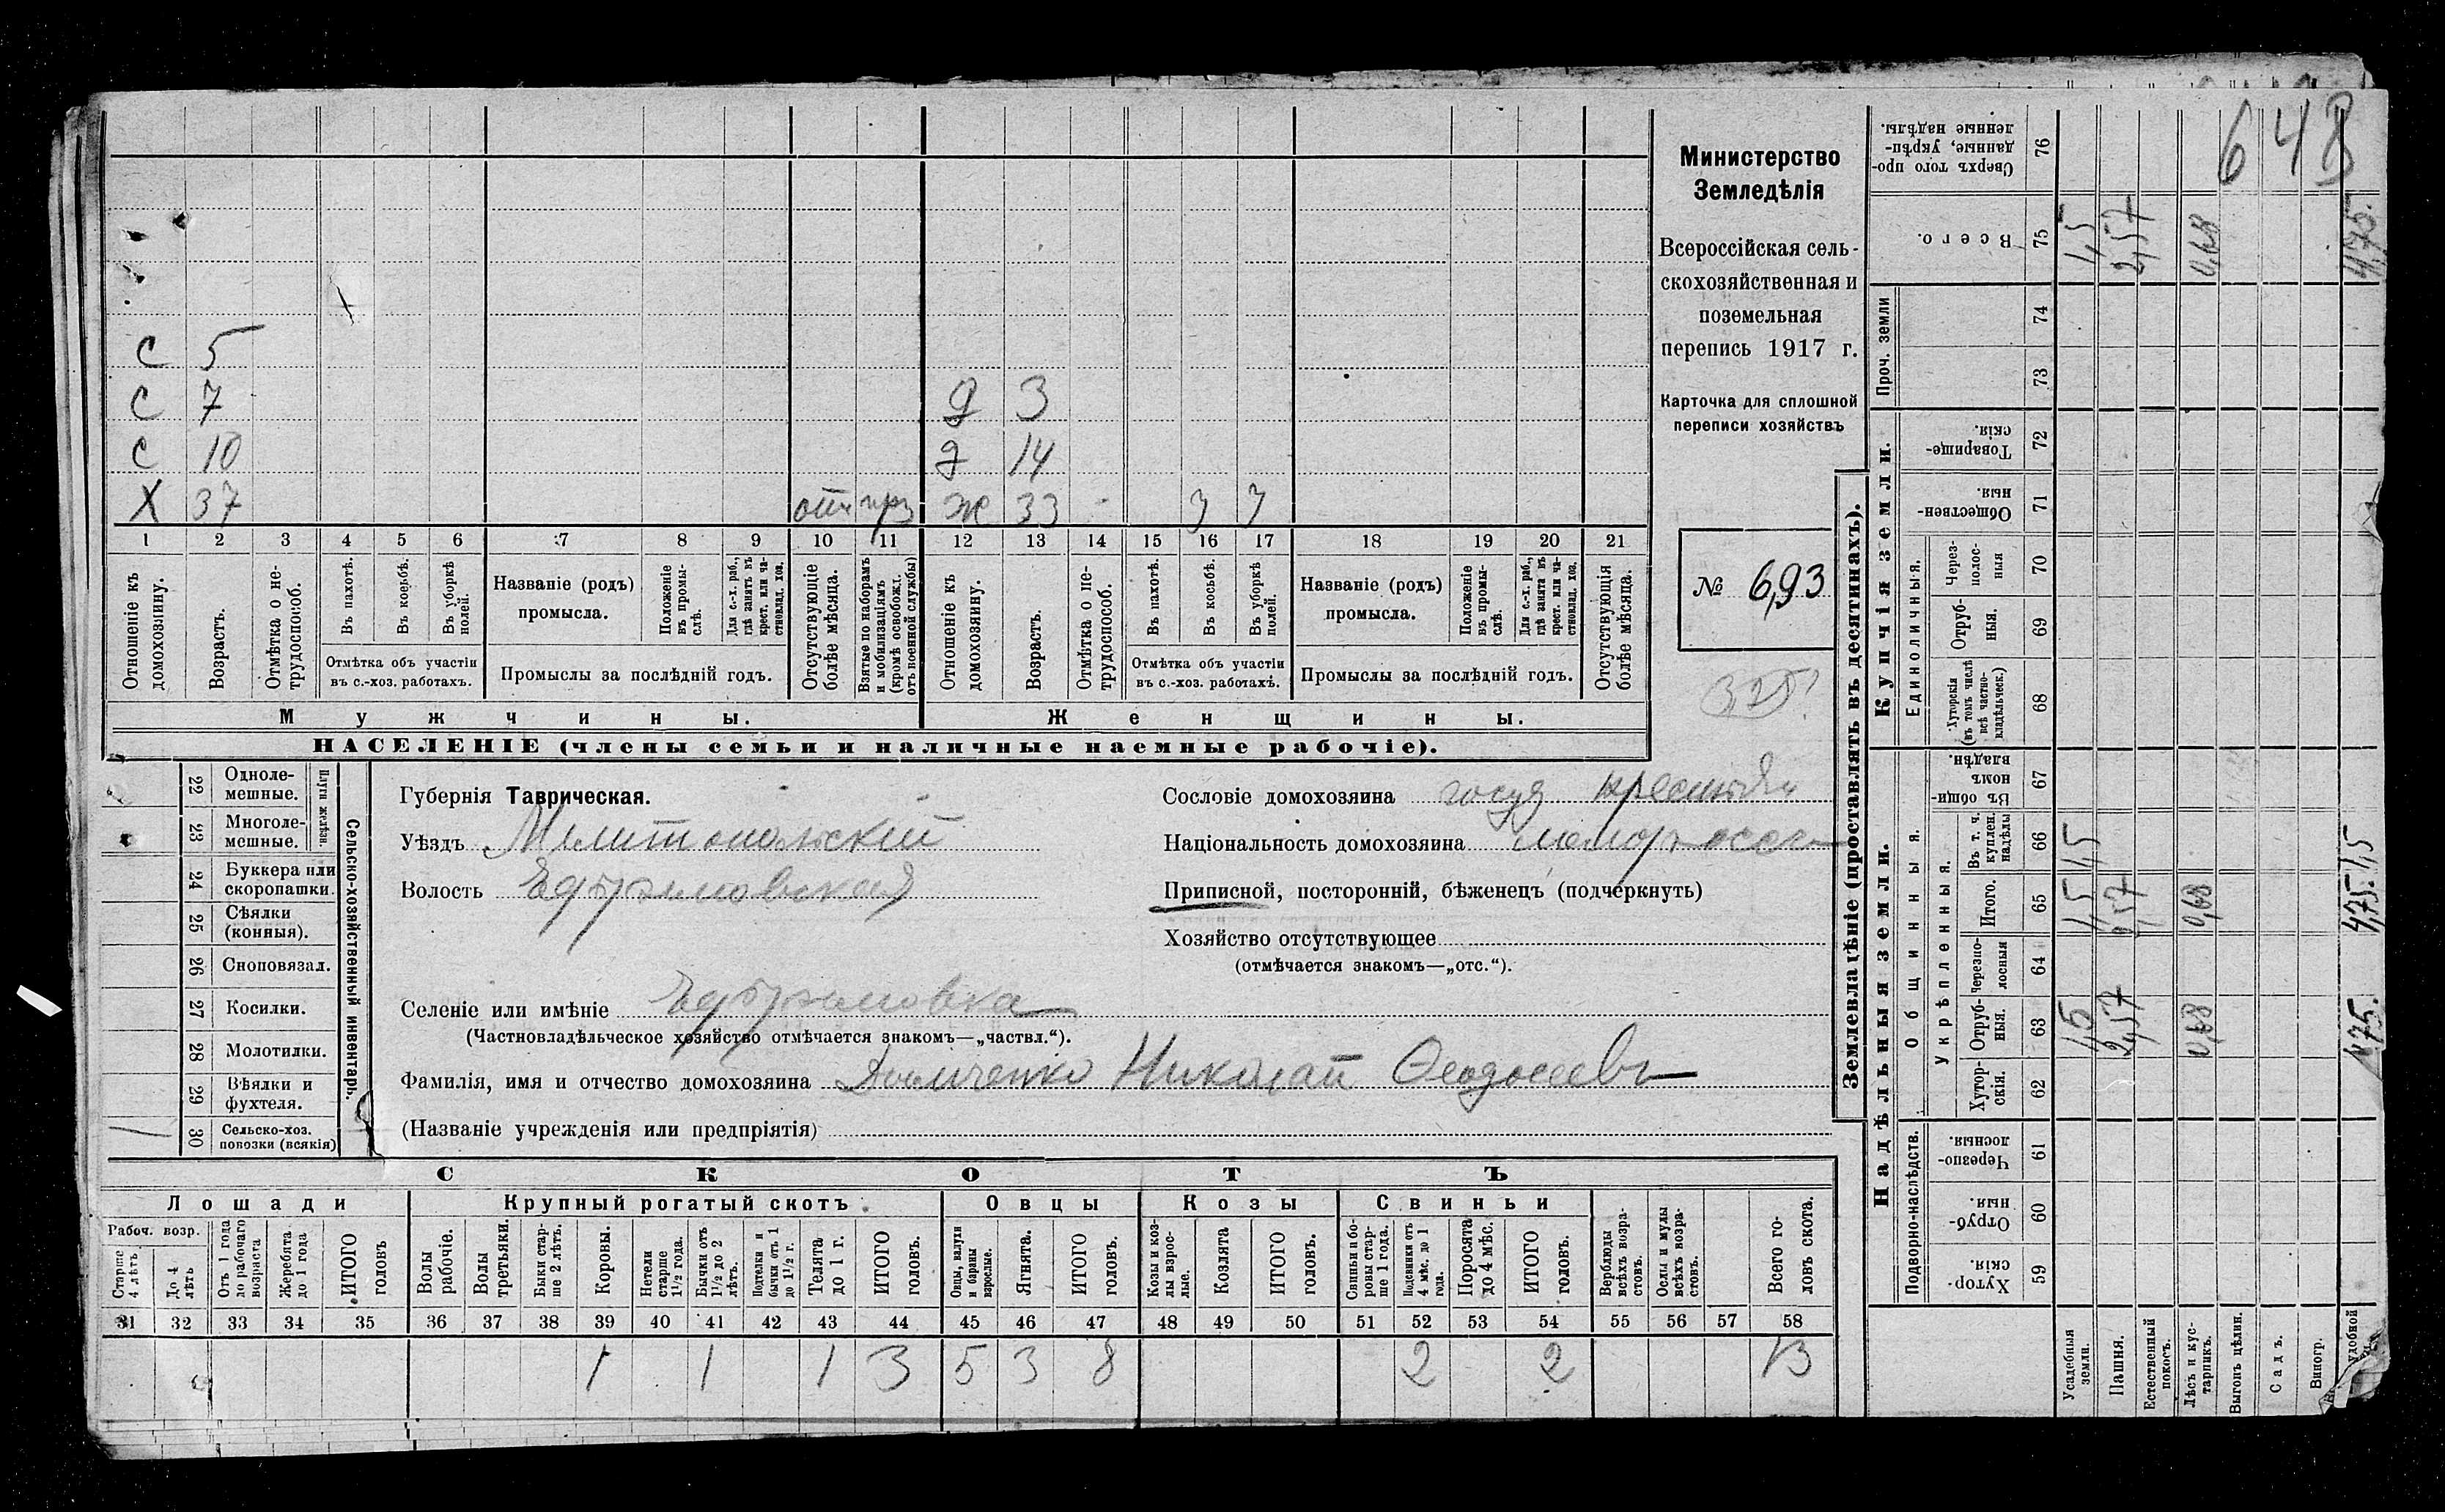 648
Министерство
Земледѣлія
Всероссійская сель-
скохозяйственная и
поземельная
перепись 1917 г.
Карточка для сплошной
переписи хозяйствъ
№ 693
3,25
С 5
С 7 д 3
С 10 д 14
Х 37 отс д ж 33 з з
1 2 3 4 5 6 7 8 9 10 11 12 13 14 15 16 17 18 19 20 21
Отношеніе къ домохозяину.
Возрастъ.
Отмѣтка о не-трудоспособ.
Въ пахотѣ.
Въ косьбѣ.
Въ уборкѣ полей.
Отмѣтка объ участіи
въ с.-хоз. работахъ.
Названіе (родъ)
промысла.
Положеніе въ промы-слѣ.
Для с.-х. раб., гдѣ занятъ въ крест. или ча-стновлад. хоз.
Промыслы за послѣдній годъ.
Отсутствующіе болѣе мѣсяца.
Взятые по наборамъ и мобилизаціямъ (кромѣ освобожд. отъ военной службы)
Отношеніе къ домохозяину.
Возрастъ.
Отмѣтка о не-трудоспособ.
Въ пахотѣ.
Въ косьбѣ.
Въ уборкѣ полей.
Отмѣтка объ участіи
въ с.-хоз. работахъ.
Названіе (родъ)
промысла.
Положеніе въ промы-слѣ.
Для с.-х. раб., гдѣ занята въ крест. или ча-стновлад. хоз.
Промыслы за послѣдній годъ.
Отсутствующія болѣе мѣсяца.
Мужчины.
Женщины.
НАСЕЛЕНІЕ (члены семьи и наличные наемные рабочіе).
Сельско-хозяйственный инвентарь.
Плуги желѣзн.
22 Одноле-
мешные.
23 Многоле-
мешные.
24 Буккера или
скоропашки.
25 Сѣялки
(конныя).
26 Сноповязал.
27 Косилки.
28 Молотилки.
29 Вѣялки и
фухтеля.
30 Сельско-хоз.
повозки (всякія)
Губернія Таврическая.
Уѣздъ Мелитопольскій
Волость Ефремовская
Селеніе или имѣніе Ефремовка
(Частновладѣльческое хозяйство отмѣчается знакомъ—„частвл.“).
Фамилія, имя и отчество домохозяина Николай Феодосеевъ
(Названіе учрежденія или предпріятія)
Сословіе домохозяина госуд крестьян
Національность домохозяина малоросс
Приписной, посторонній, бѣженецъ (подчеркнуть)
Хозяйство отсутствующее
(отмѣчается знакомъ—„отс.“).
СКОТЪ
Лошади
Крупный рогатый скотъ
Овцы
Козы
Свиньи
Рабоч. возр.
Старше 4 лѣтъ
До 4 лѣтъ
Отъ 1 года до рабочаго возраста
Жеребята до 1 года
ИТОГО головъ
Волы рабочіе.
Волы третьяки.
Быки стар-ше 2 лѣтъ.
Коровы.
Нетели старше 1½ года.
Бычки отъ 1½ до 2 лѣтъ.
Подтелки и бычки отъ 1 до 1½ г.
Телята до 1 г.
ИТОГО головъ.
Овцы, валухи и бараны взрослые.
Ягнята.
ИТОГО головъ.
Козы и коз-лы взрос-лые.
Козлята
ИТОГО головъ.
Свиньи и бо-ровы стар-ше 1 года.
Подсвинки отъ 4 мѣс. до 1 года.
Поросята до 4 мѣс.
ИТОГО головъ.
Верблюды всѣхъ возра-стовъ.
Ослы и мулы всѣхъ возра-стовъ.
Всего го-ловъ скота.
31 32 33 34 35 36 37 38 39 40 41 42 43 44 45 46 47 48 49 50 51 52 53 54 55 56 57 58
1 1 1 3 5 3 8 2 2 13
Землевладѣніе (проставлять въ десятинахъ).
Надѣльныя земли.
Купчія земли.
Проч. земли
Подворно-наслѣдств.
Общинныя.
Укрѣпленныя.
Единоличныя.
Хутор-скія. 59
Отруб-ныя. 60
Черезпо-лосныя. 61
Хутор-скія. 62
Отруб-ныя. 63 1,5 2,57 0,68 4,75.
Черезпо-лосныя 64
Итого. 65 1,5 2,57 0,68 4,75.
Въ т. ч. куплен. надѣлы 66 1,5 1,5
Въ общин-номъ владѣн. 67
Хуторскія (въ томъ числѣ всѣ частно-владѣльческ.) 68
Отруб-ныя. 69
Через-полос-ныя 70
Обществен-ныя. 71
Товарище-скія. 72
73
74
Всего. 75 1,5 2,57 0,68 4,75.
Сверхъ того про-данные, укрѣп-ленные надѣлы. 76
Усадебныя земли.
Пашня.
Естественный покосъ.
Лѣсъ и кус-тарникъ.
Выгонъ цѣлин.
Садъ.
Виногр.
удобной